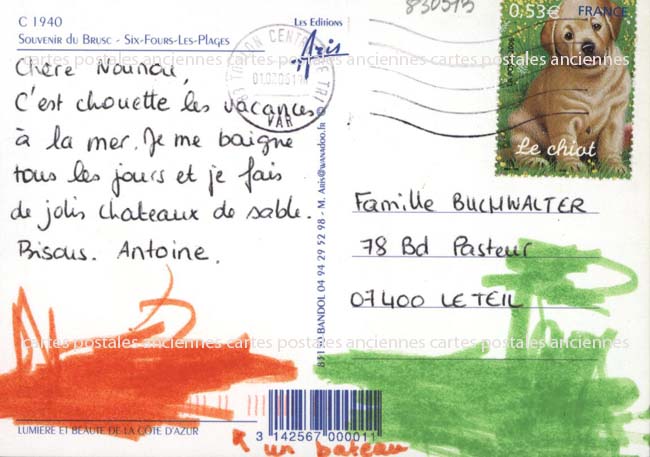 C 1940
SOUVENIR DU BRUSC - SIX-FOURS-LES-PLAGES
Les Editions
Aris
830515
0,53€ FRANCE
Le chiot
TOULON CENTRE DE TRI
VAR
Chère Nounou,
C'est chouette les vacances
à la mer. Je me baigne
tous les jours et je fais
de jolis chateaux de sable.
Bisous. Antoine.
83150 BANDOL 04 94 29 52 98 - M. Aris@wanadoo.fr ©
Famille BUCHWALTER
78 Bd Pasteur
07400 LE TEIL
cartes postales anciennes cartes postales anciennes cartes postales anciennes cartes postales anciennes
LUMIERE ET BEAUTE DE LA COTE D'AZUR
3 142567 000011
un bateau